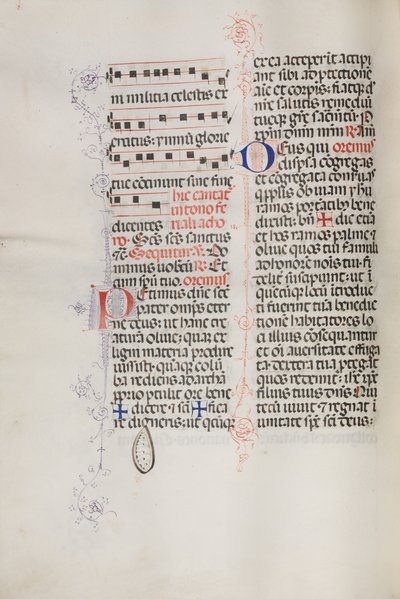 in militia celestis ex
ercitus: ymnum glorie
tue concinunt sine fine
hic cantat
in tono fe
dicentes
riali ado
ro. Scs scs sanctus
Sequitur. Do
minus vobiscum R. Et
cum spu tuo. oremus
Petimus dne sce
pater omps eter
ne deus: ut hanc cre
aturam olive: quam ex
ligni materia prodire
iussisti: quamque colum
ba rediens ad archam
pprio ptulit ore bene
✠ dicere et sci ✠ fica
re digneris: ut quicunque
ex ea acceperit accipi
ant sibi adptectionem
aie et corpis: fiatque dne
nre salutis remedium
tueque gre sacramentum. P
xpm dnm nrm R. am
Deus qui oremus
dispsa congregas
et congregata conservas
qui pplis obviam yhu
ramos portantibus bene
dixisti: bn ✠ dic etiam
et hos ramos palme et
olive quos tui famuli
ad honorem nois tui fi
deliter suscipiunt: ut i
quencunque locum introduc
ti fuerint tuam benedic
tionem habitatores lo
ci illius consequantur
et oi aversitate effuga
ta dextera tua ptegat
quos redemit: ihs xps
filius tuus dns. Qui
tecum vivit et regnat i
unitate sps sci deus: